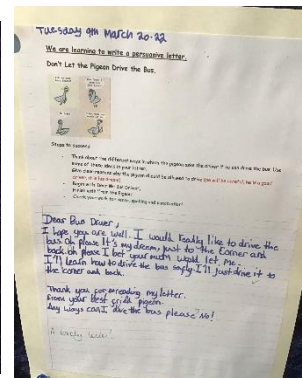 Tuesday 9th March 20.22
We are learning to write a persuasive letter.
Don't Let the Pigeon Drive the Bus.
Steps to success
Think about the different ways in which the pigeon asks the driver if he can drive the bus. Use some of these ideas in your letter.
Give clear reasons why the pigeon should be allowed to drive
Begin with Dear Bus Driver,
Finish with From the Pigeon
Check your work for
Dear Bus Driver,
I hope you are well. I would really like to drive the
bus oh please It's my dream just to the Corner and
back oh please I bet your mum would let me.
I'll learn how to drive the bus safly I'll just drive it to
the corner and back.
Thank you for reading my letter.
From your best pigeon.
Any ways can I drive the bus please No!
A lovely